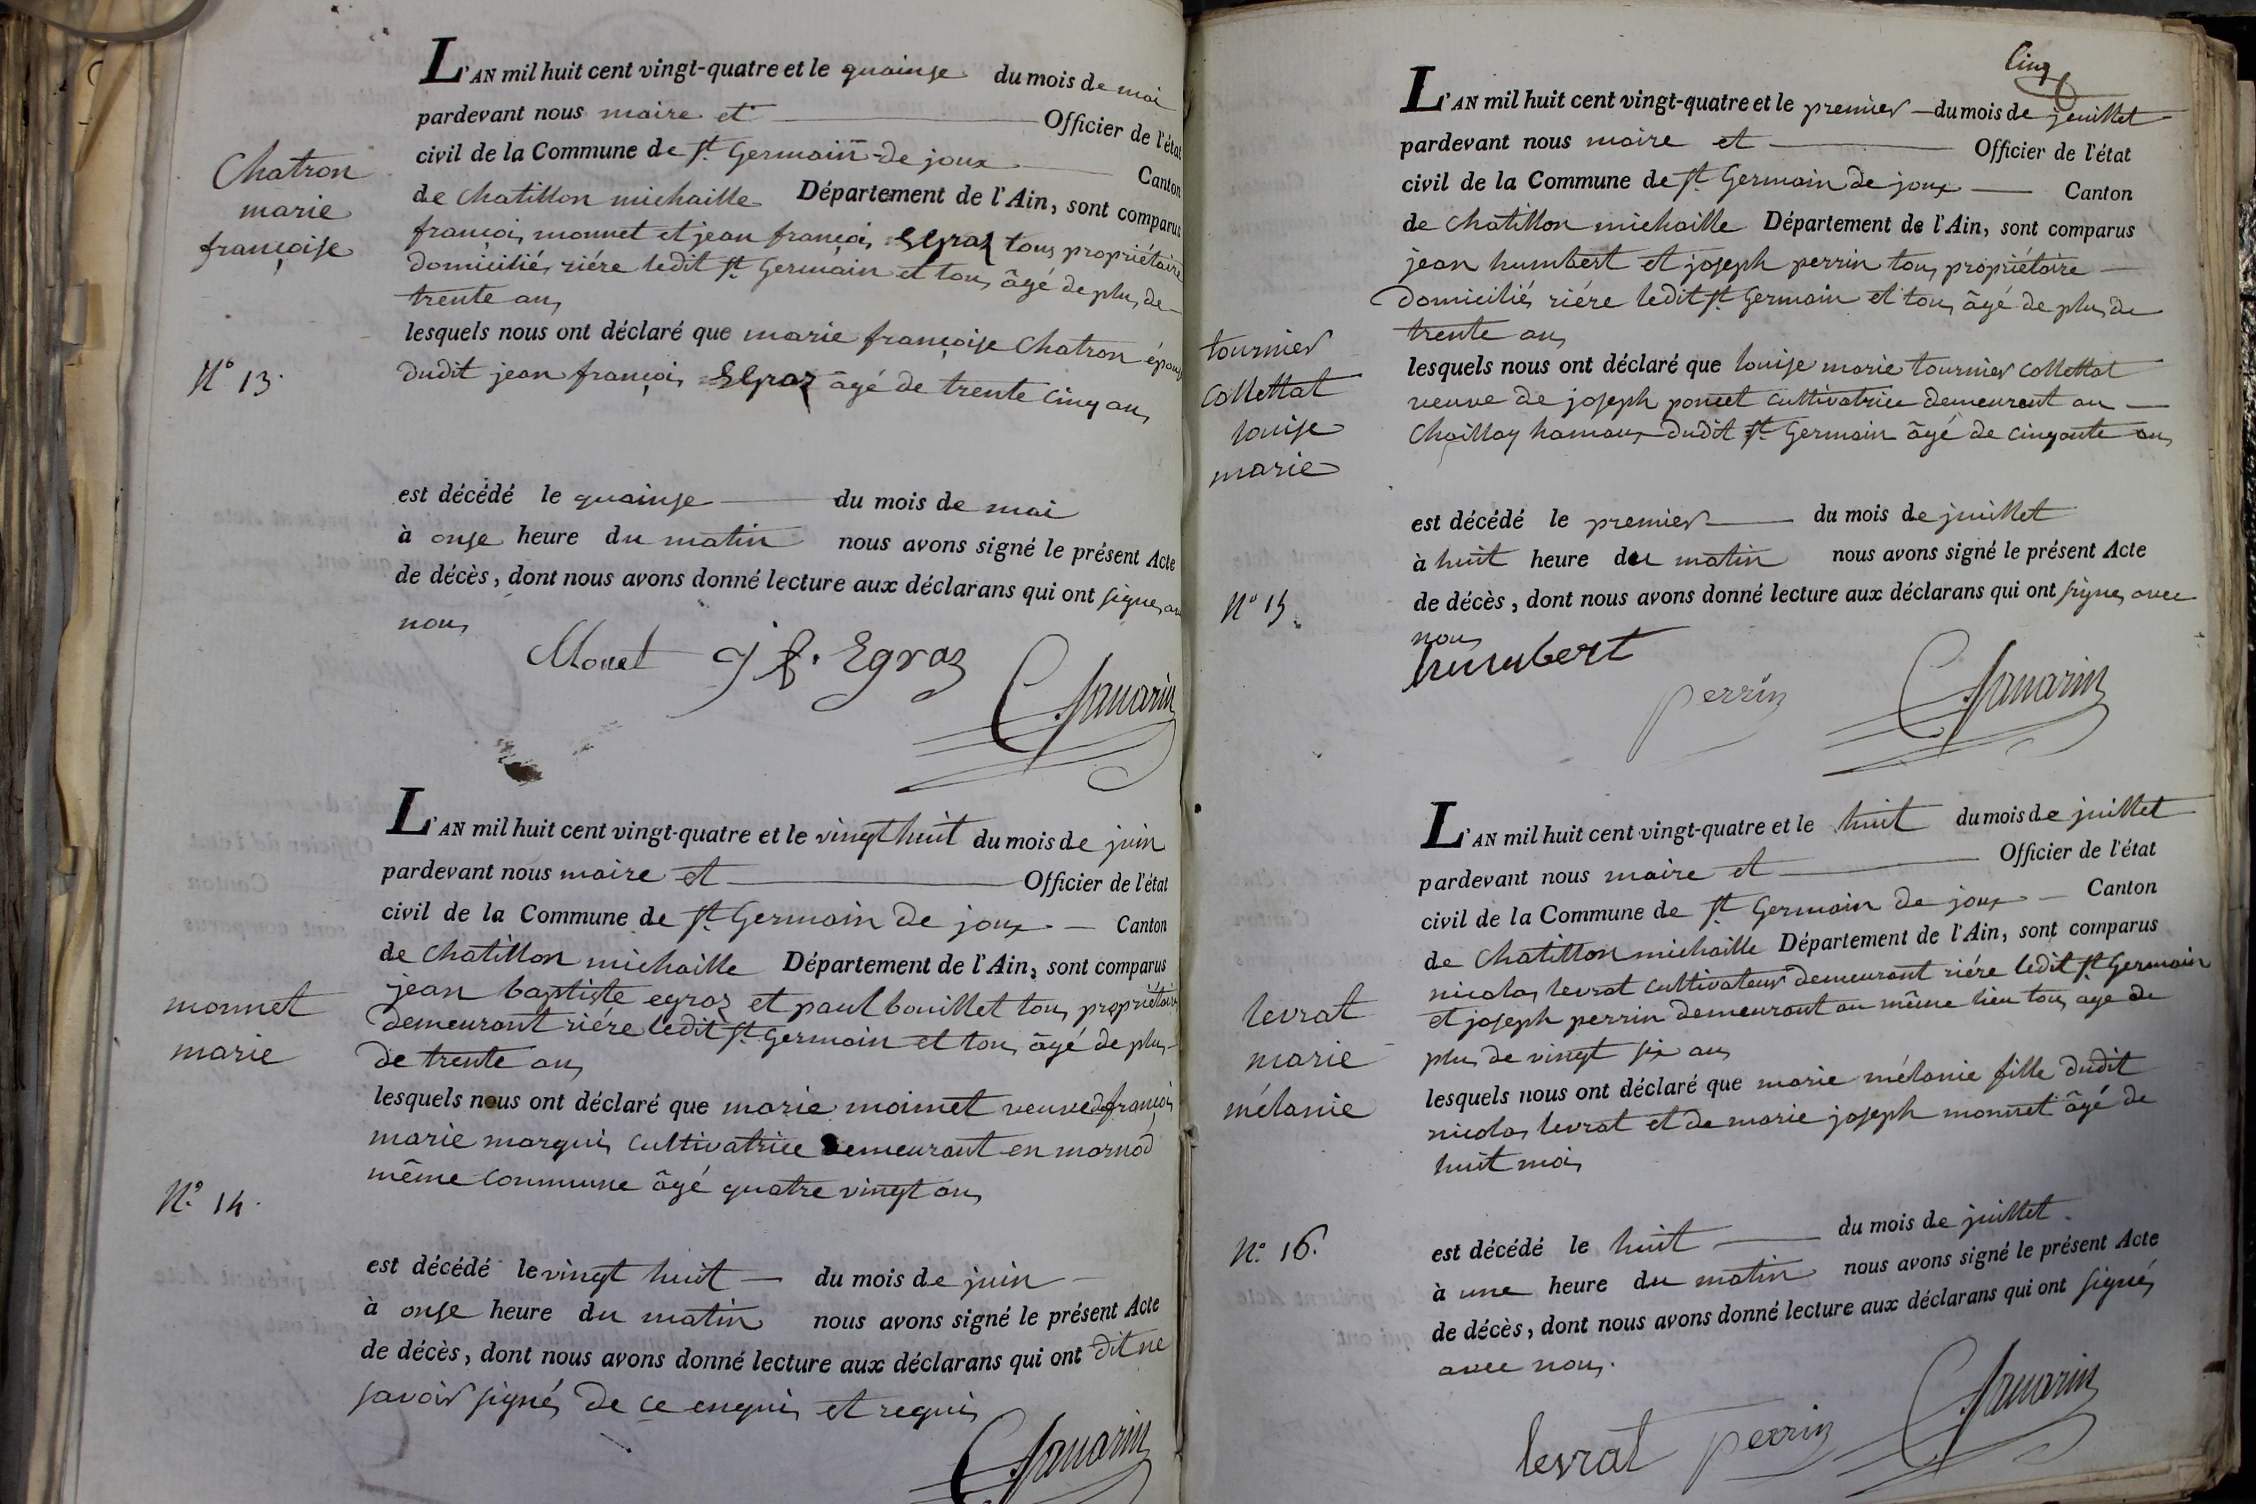 L'AN mil huit cent vingt-quatre et le quainse du mois de mai
pardevant nous maire et Officier de l'état
civil de la Commune de St. Germain de joux Canton
de chatillon michaille Département de l'Ain, sont comparus
françois monnet et jean françois Egraz tous propriétaire
domiciliés riére ledit St. Germain et tous âgé de plus de
trente ans
lesquels nous ont déclaré que marie françoise Chatron épouse
dudit jean françois Egraz âgé de trente cinq ans
est décédé le quainse du mois de mai
à onse heure du matin nous avons signé le présent Acte
de décès, dont nous avons donné lecture aux déclarans qui ont signés
nous
Chatron
marie
françoise
N° 13.
Monet j f. Egraz
L'AN mil huit cent vingt-quatre et le vingt huit du mois de juin
pardevant nous maire et Officier de l'état
civil de la Commune de St. Germain de joux Canton
de chatillon michaille Département de l'Ain, sont comparus
jean baptiste egraz et paul bouillet tous propriétaire
demeurant riére ledit St. Germain et tous âgé de plus
de trente ans
lesquels nous ont déclaré que marie monnet veuve de françois
marie marquis cultivatrice demeurant en marnod
même commune âgé quatre vingt ans
est décédé le vingt huit du mois de juin
à onse heure du matin nous avons signé le présent Acte
de décès, dont nous avons donné lecture aux déclarans qui ont dit ne
savoir signés de ce enquis et requis
monnet
marie
N°. 14.
Cinq
L'AN mil huit cent vingt-quatre et le premier du mois de juillet
pardevant nous maire et Officier de l'état
civil de la Commune de St. Germain de joux Canton
de chatillon michaille Département de l'Ain, sont comparus
jean humbert et joseph perrin tous propriétaire
domiciliés riére ledit St. Germain et tous âgé de plus de
trente ans
lesquels nous ont déclaré que louise marie tournier collettat
veuve de joseph poncet cultivatrice demeurant au
hamaux dudit St. Germain âgé de cinqante ans
est décédé le premier du mois de juillet
à huit heure du matin nous avons signé le présent Acte
de décès, dont nous avons donné lecture aux déclarans qui ont signés avec
nous
tournier
collettat
louise
marie
N° 15.
humbert
perrin
L'AN mil huit cent vingt-quatre et le huit du mois de juillet
pardevant nous maire et Officier de l'état
civil de la Commune de St. Germain de joux Canton
de chatillon michaille Département de l'Ain, sont comparus
nicolas levrat cultivateur demeurant riére ledit St. Germain
et joseph perrin demeurant au même lieu tous age de
plus de vingt six ans
lesquels nous ont déclaré que marie mélanie fille dudit
nicolas levrat et de marie joseph monnet âgé de
huit mois
est décédé le huit du mois de juillet
à une heure du matin nous avons signé le présent Acte
de décès, dont nous avons donné lecture aux déclarans qui ont signés
avec nous.
levrat
marie
mélanie
N°. 16.
levrat perrin